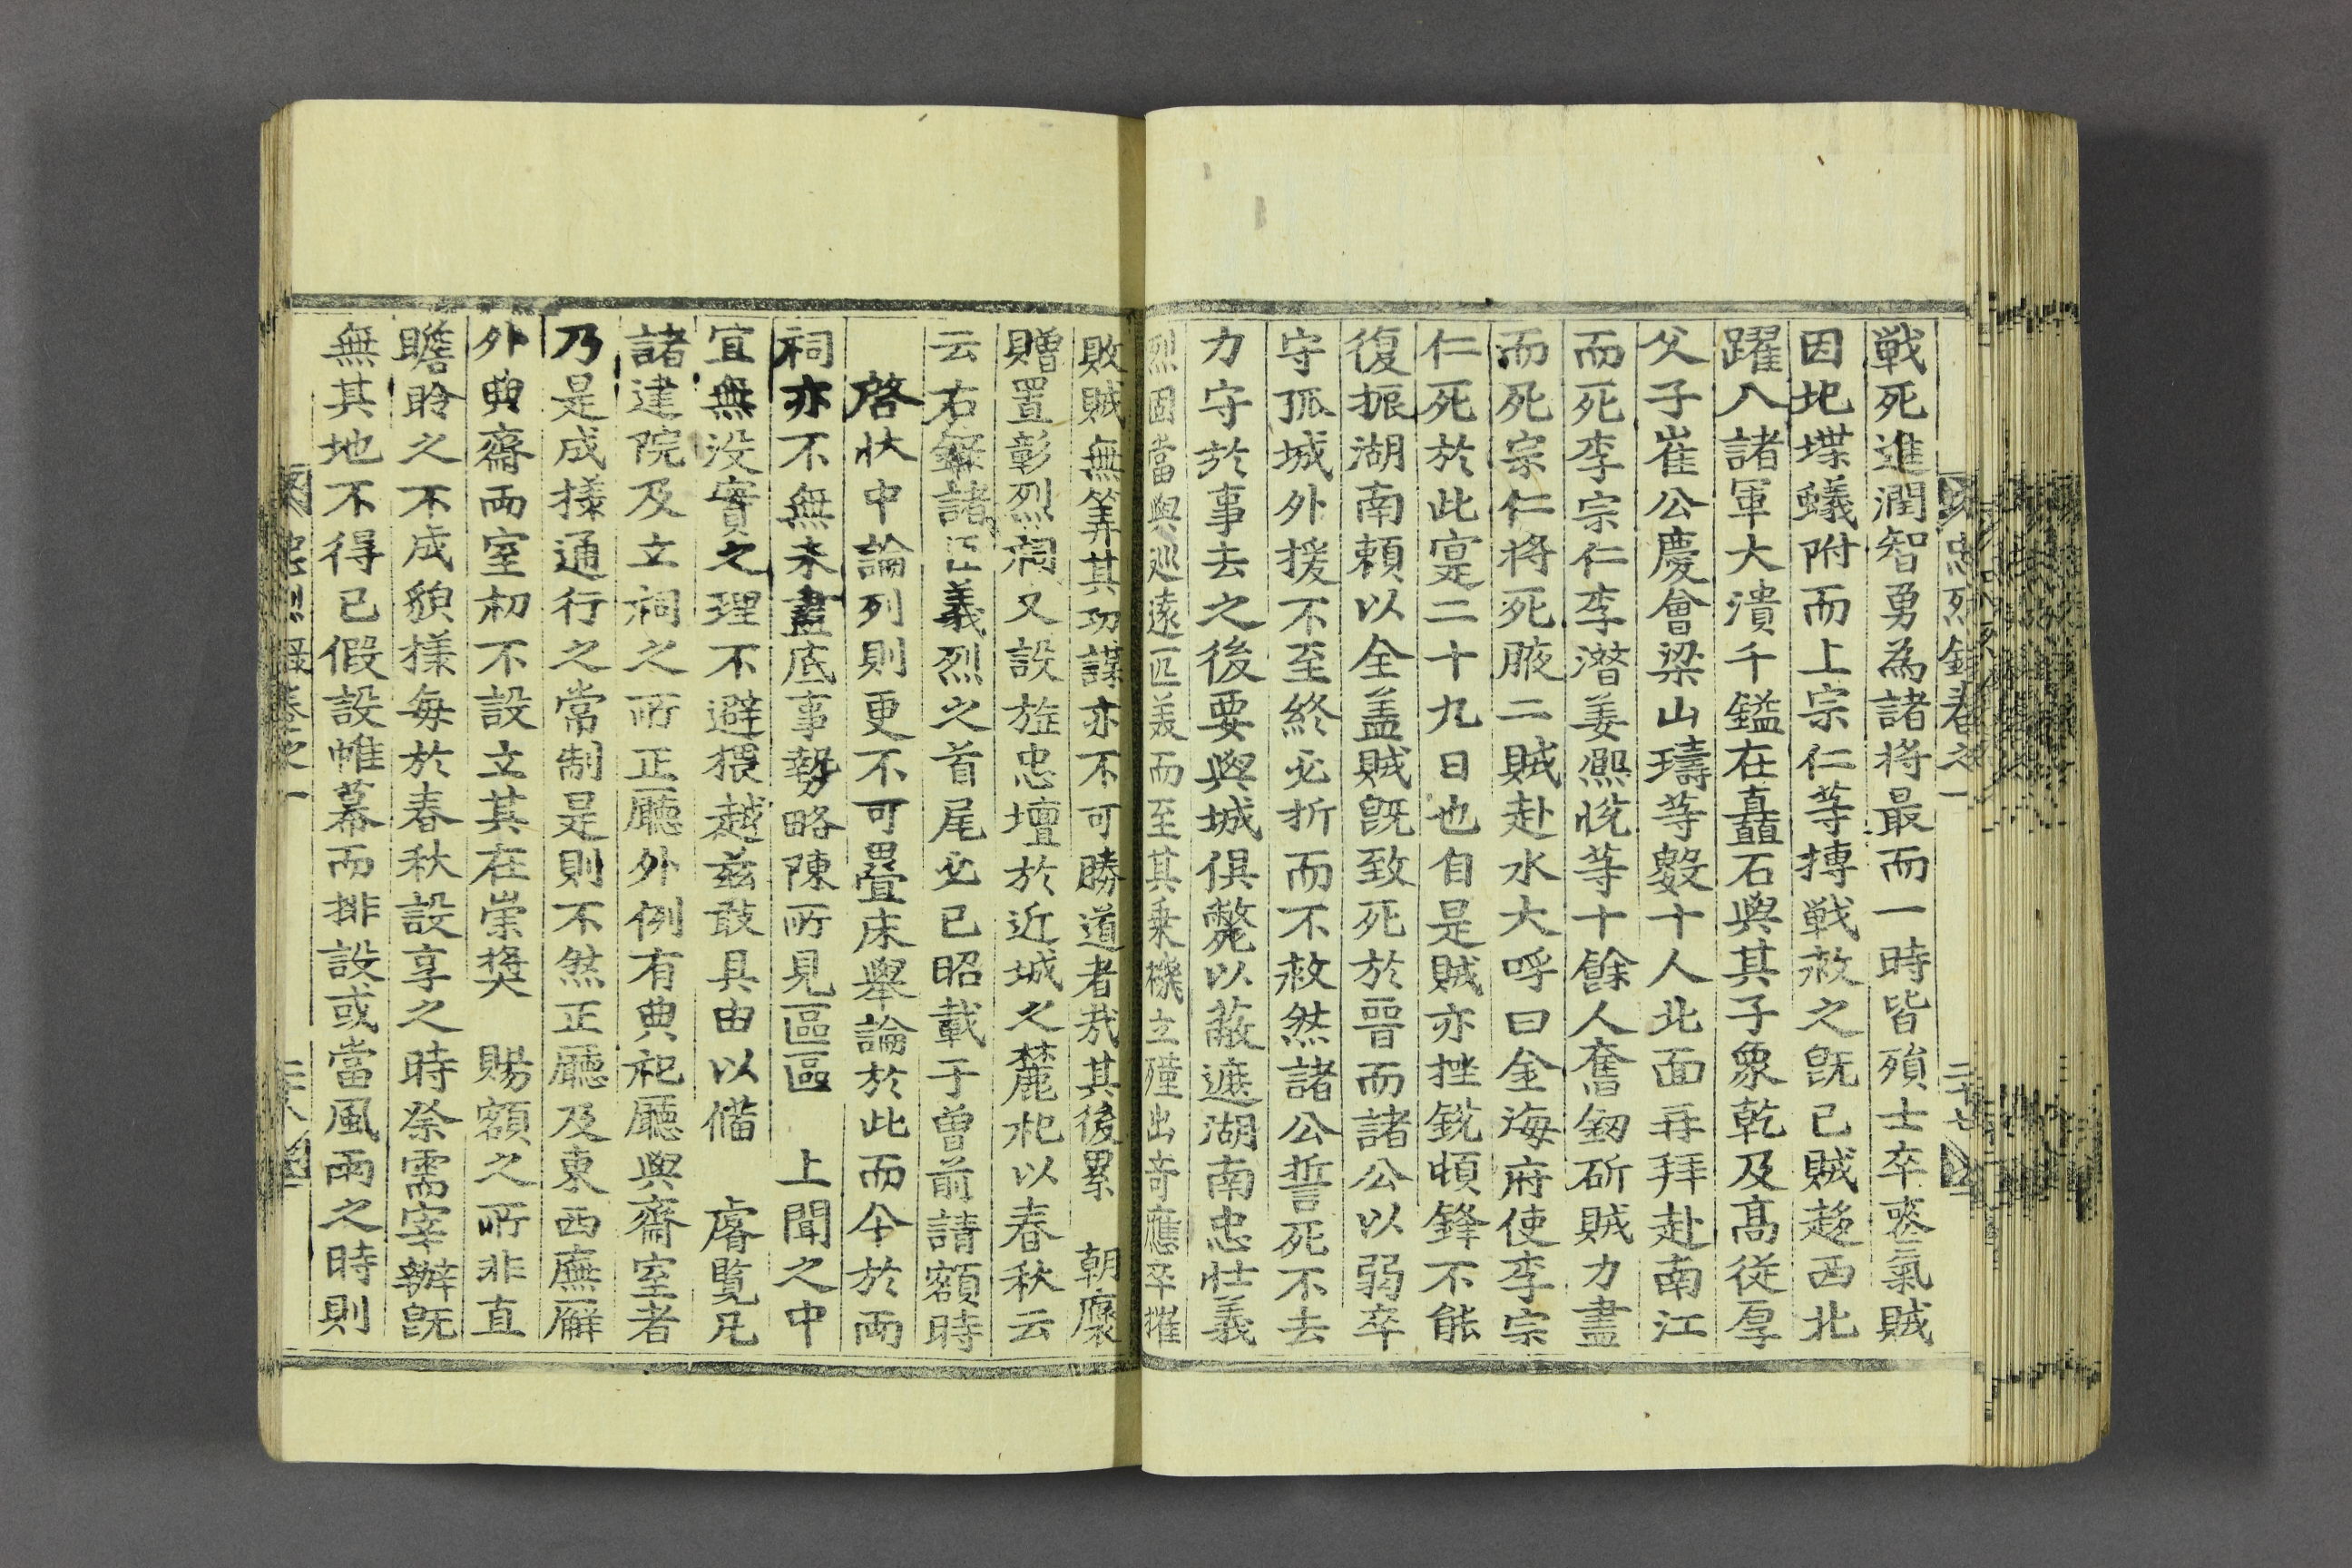 戦死進潤智勇為諸将最而一時皆殞士卒喪氣賊
因圯堞蟻附而上宗仁等搏戦敇之旣已賊趍西北
躍入諸軍大潰千鎰在矗石與其子象乾及髙從厚
父子崔公慶會梁山璹等數十人北面再拜赴南江
而死李宗仁李潜姜凞悅等十餘人奮釰斫賊力盡
而死宗仁将死腋二賊赴水大呼曰金海府使李宗
仁死於此寔二十九日也自是賊亦挫銳頓鋒不能
復振湖南頼以全盖賊旣致死於晉而諸公以弱卒
守孤城外援不至終必折而不敇然諸公誓死不去
力守於事去之後要與城俱斃以蔽遮湖南忠壮義
烈固當與巡遠匹美而至其乗機立殣出奇應卒摧
敗賊無筭其功謀亦不可勝道者㢤其後累　朝褒
贈置彰烈祠又設旌忠壇於近城之麓祀以春秋云
云右諸臣義烈之首尾必已昭載于曾前請額時
啓状中論列則更不可疊床舉論於此而今於兩
祠亦不無未盡底事勢略陳所見區區　上聞之中
宜無没實之理不避猥越玆敢具由以俻　睿覧凡
諸建院及立祠之所正廳外例有典祀廳與齋室者
乃是成㨾通行之常制是則不然正廳及東西廡廨
外典齋兩室初不設立其在崇奬　賜額之所非直
瞻聆之不成貌㨾每於春秋設享之時祭需宰辦旣
無其地不得已假設帷幕而排設或當風雨之時則
忠烈錄卷之一　二十七
忠烈録卷之一　二十八